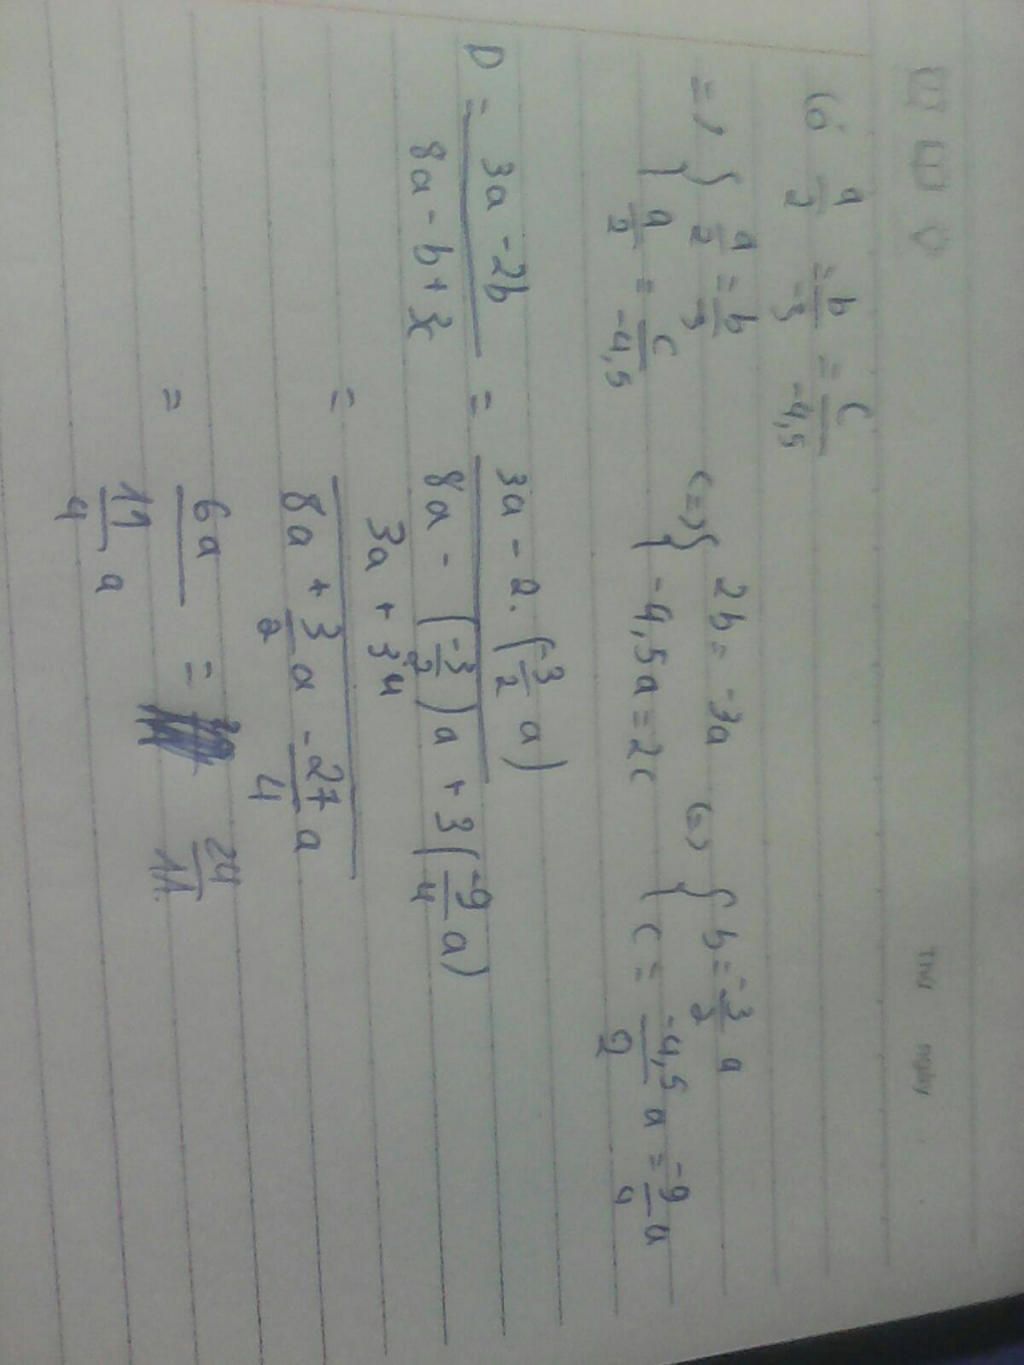 Thứ ngày
Có a/2 = b/-3 = c/-4,5
=> { a/2 = b/-3 <=> { 2b = -3a <=> { b = -3/2 a
{ a/2 = c/-4,5 { -4,5a = 2c { c = -4,5/2 a = -9/4 a
D = (3a - 2b)/(8a - b + 3c) = (3a - 2.(-3/2 a))/(8a - (-3/2)a + 3(-9/4 a))
= (3a + 3a)/(8a + 3/2 a - 27/4 a)
= 6a/(11/4 a) = 24/11